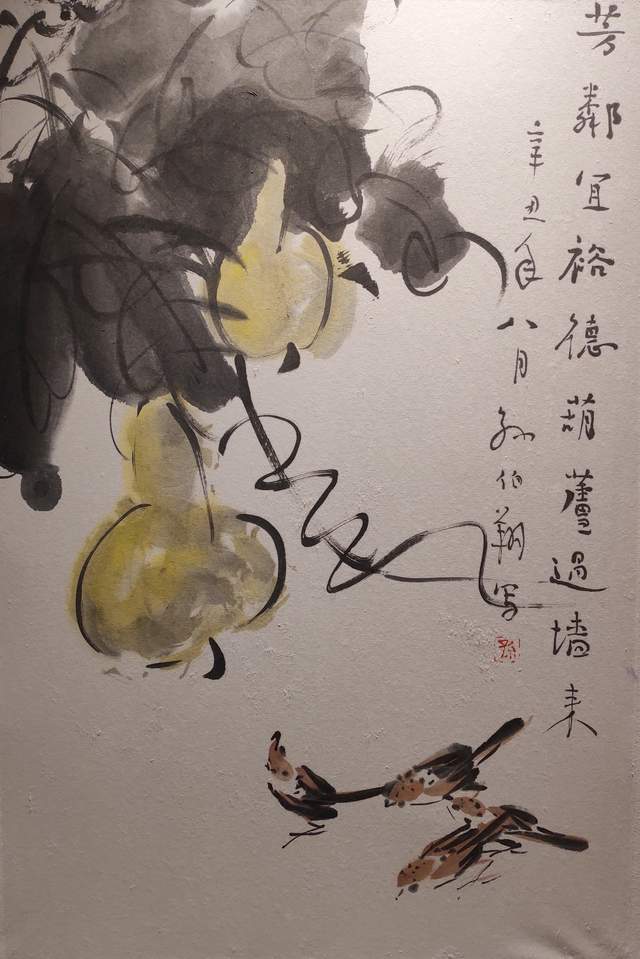 芳鄰宜裕德葫蘆過墙来
辛丑年八月孙伯翔写
孫